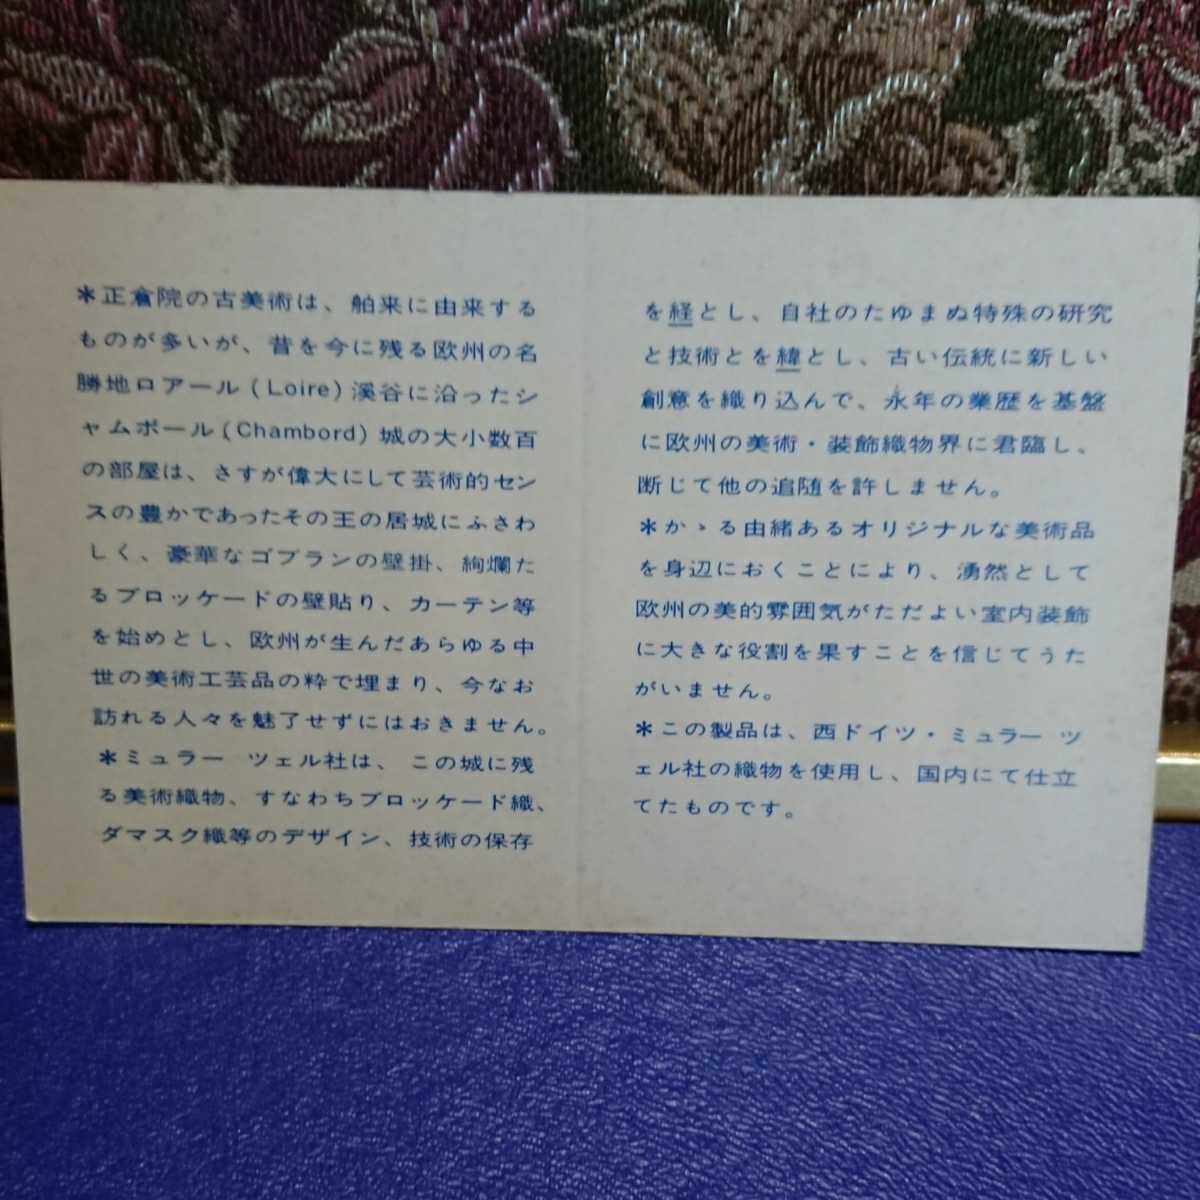 ＊正倉院の古美術は、舶来に由来する
ものが多いが、昔を今に残る欧州の名
勝地ロアール(Loire)溪谷に沿ったシ
ャムボール(Chambord)城の大小数百
の部屋は、さすが偉大にして芸術的セン
スの豊かであったその王の居城にふさわ
しく、豪華なゴブランの壁掛、絢爛た
るブロッケードの壁貼り、カーテン等
を始めとし、欧州が生んだあらゆる中
世の美術工芸品の粋で埋まり、今なお
訪れる人々を魅了せずにはおきません。
＊ミュラー ツェル社は、この城に残
る美術織物、すなわちブロッケード織、
ダマスク織等のデザイン、技術の保存
を経とし、自社のたゆまぬ特殊の研究
と技術とを緯とし、古い伝統に新しい
創意を織り込んで、永年の業歴を基盤
に欧州の美術・装飾織物界に君臨し、
断じて他の追随を許しません。
＊かゝる由緒あるオリジナルな美術品
を身辺におくことにより、湧然として
欧州の美的雰囲気がただよい室内装飾
に大きな役割を果すことを信じてうた
がいません。
＊この製品は、西ドイツ・ミュラー ツ
ェル社の織物を使用し、国内にて仕立
てたものです。